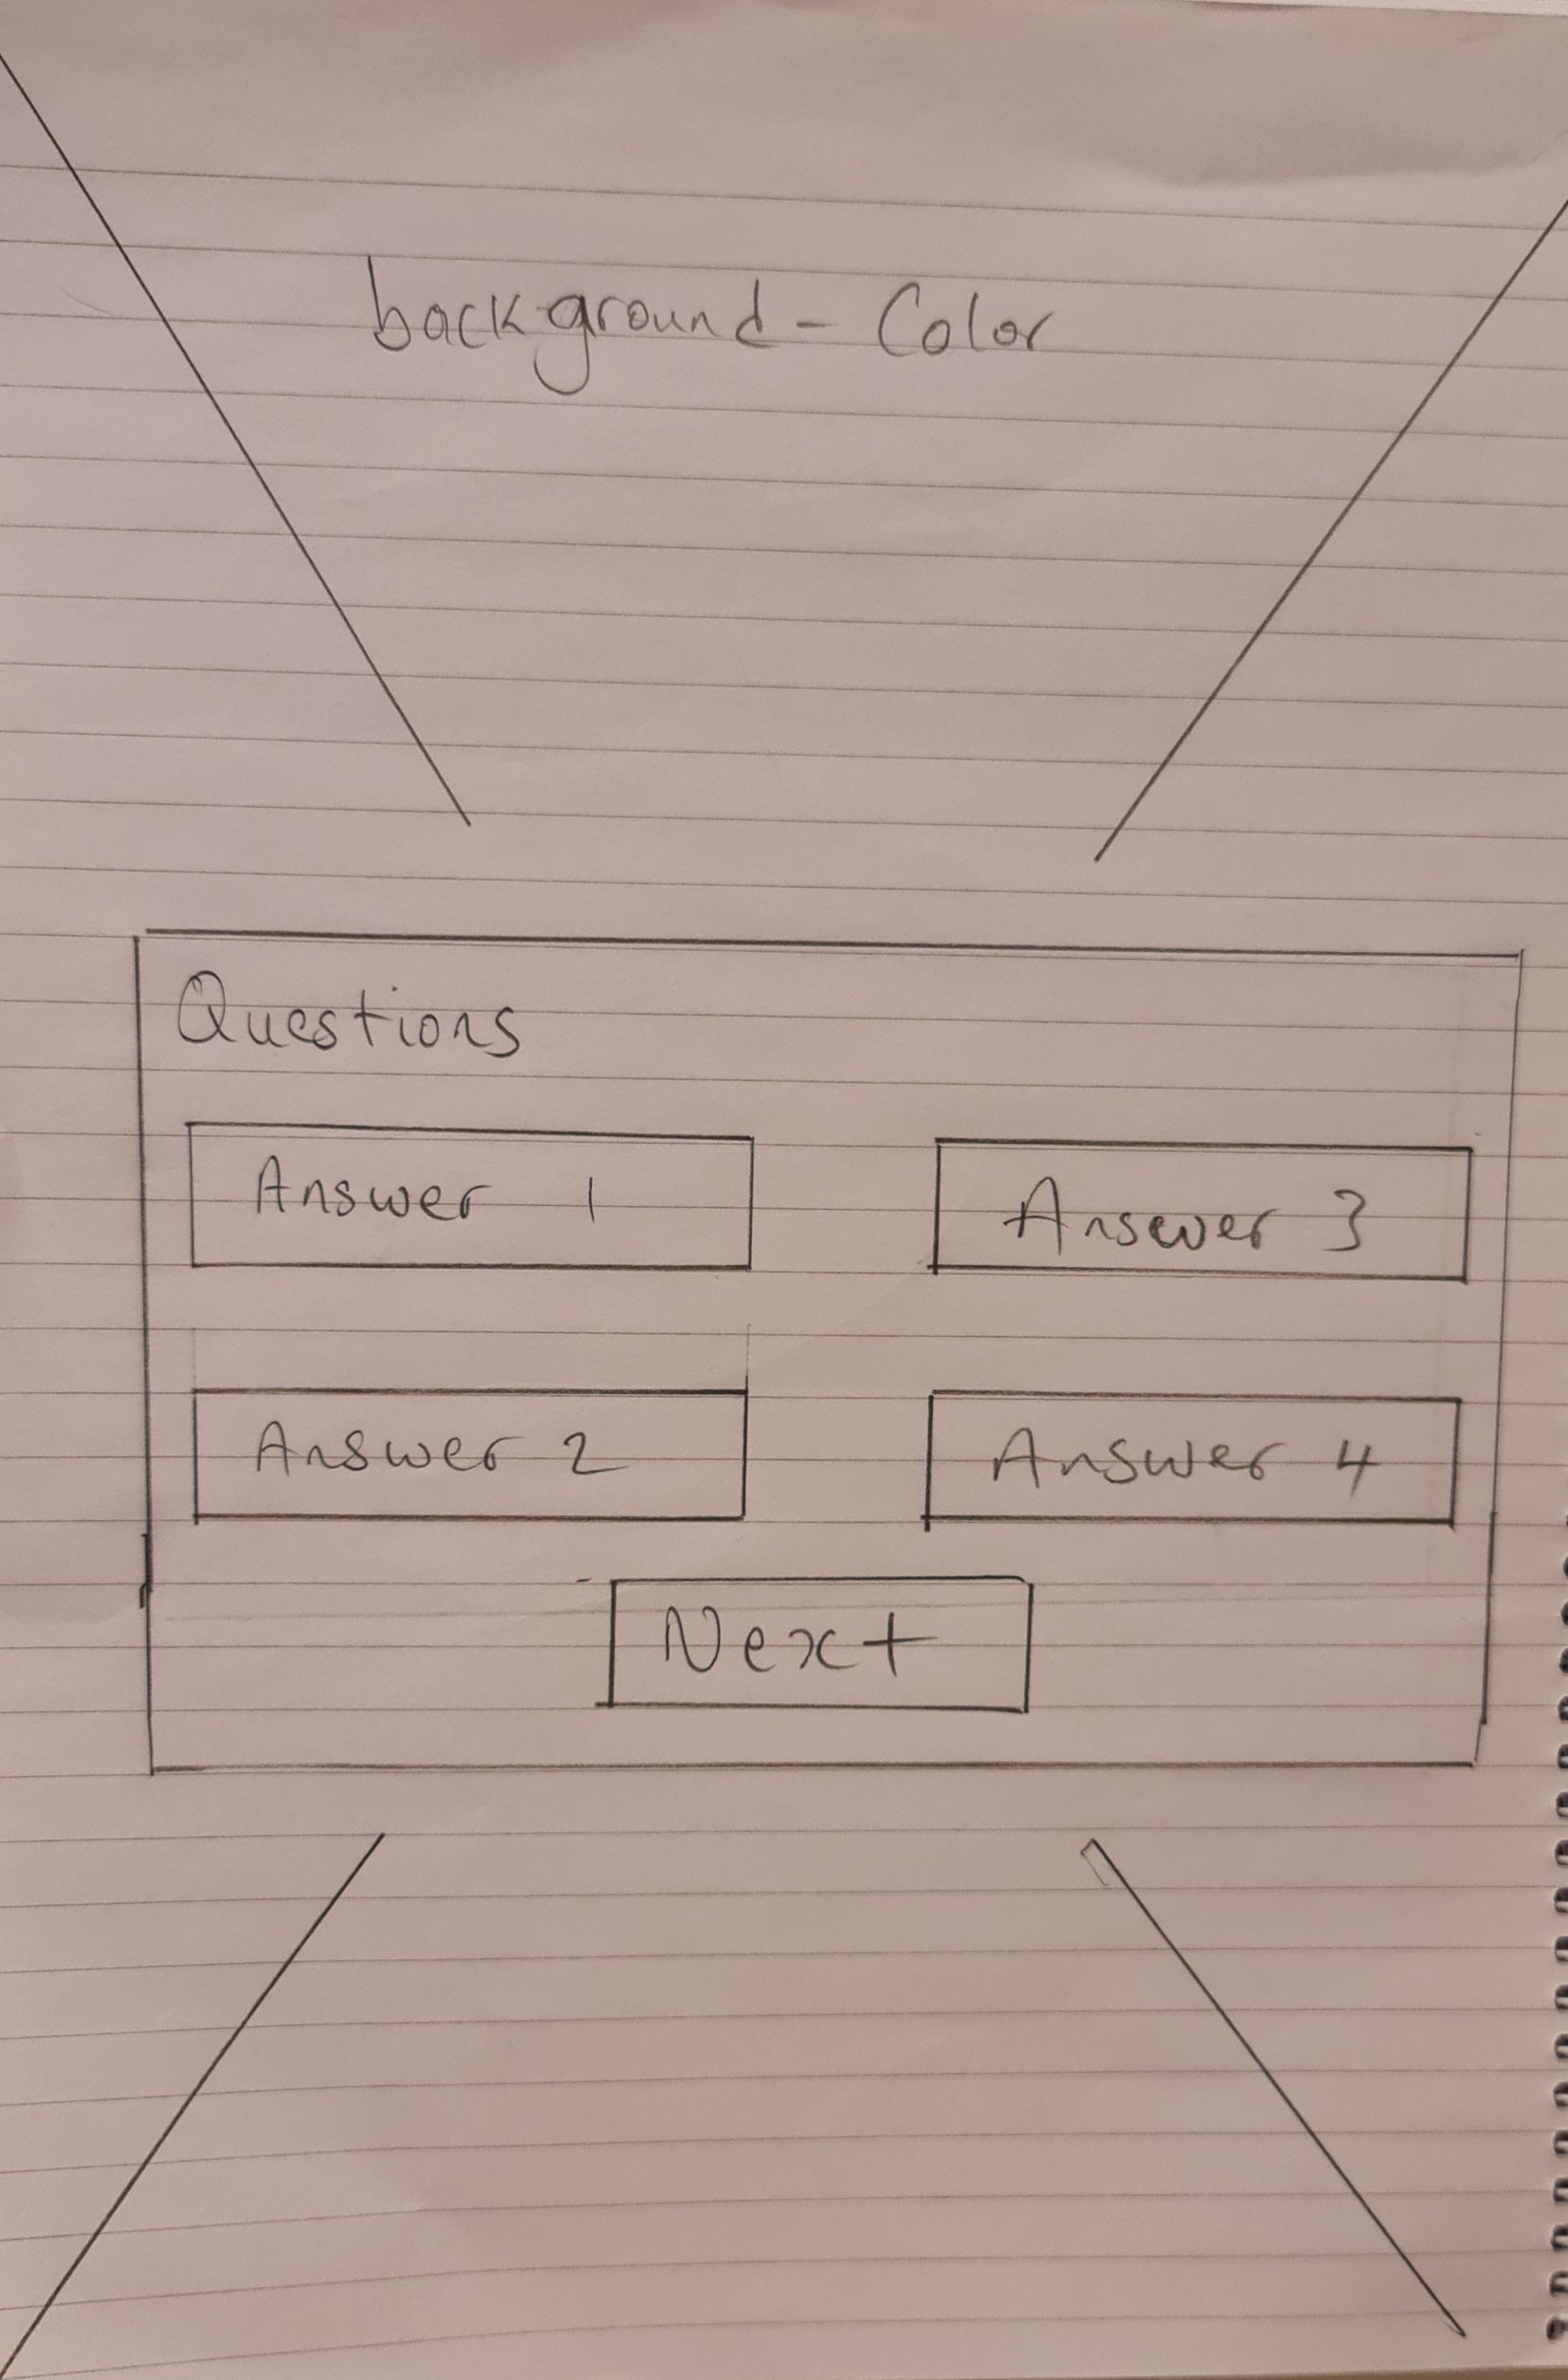 background - Color
Questions
Answer 1
Answer 3
Answer 2
Answer 4
Next